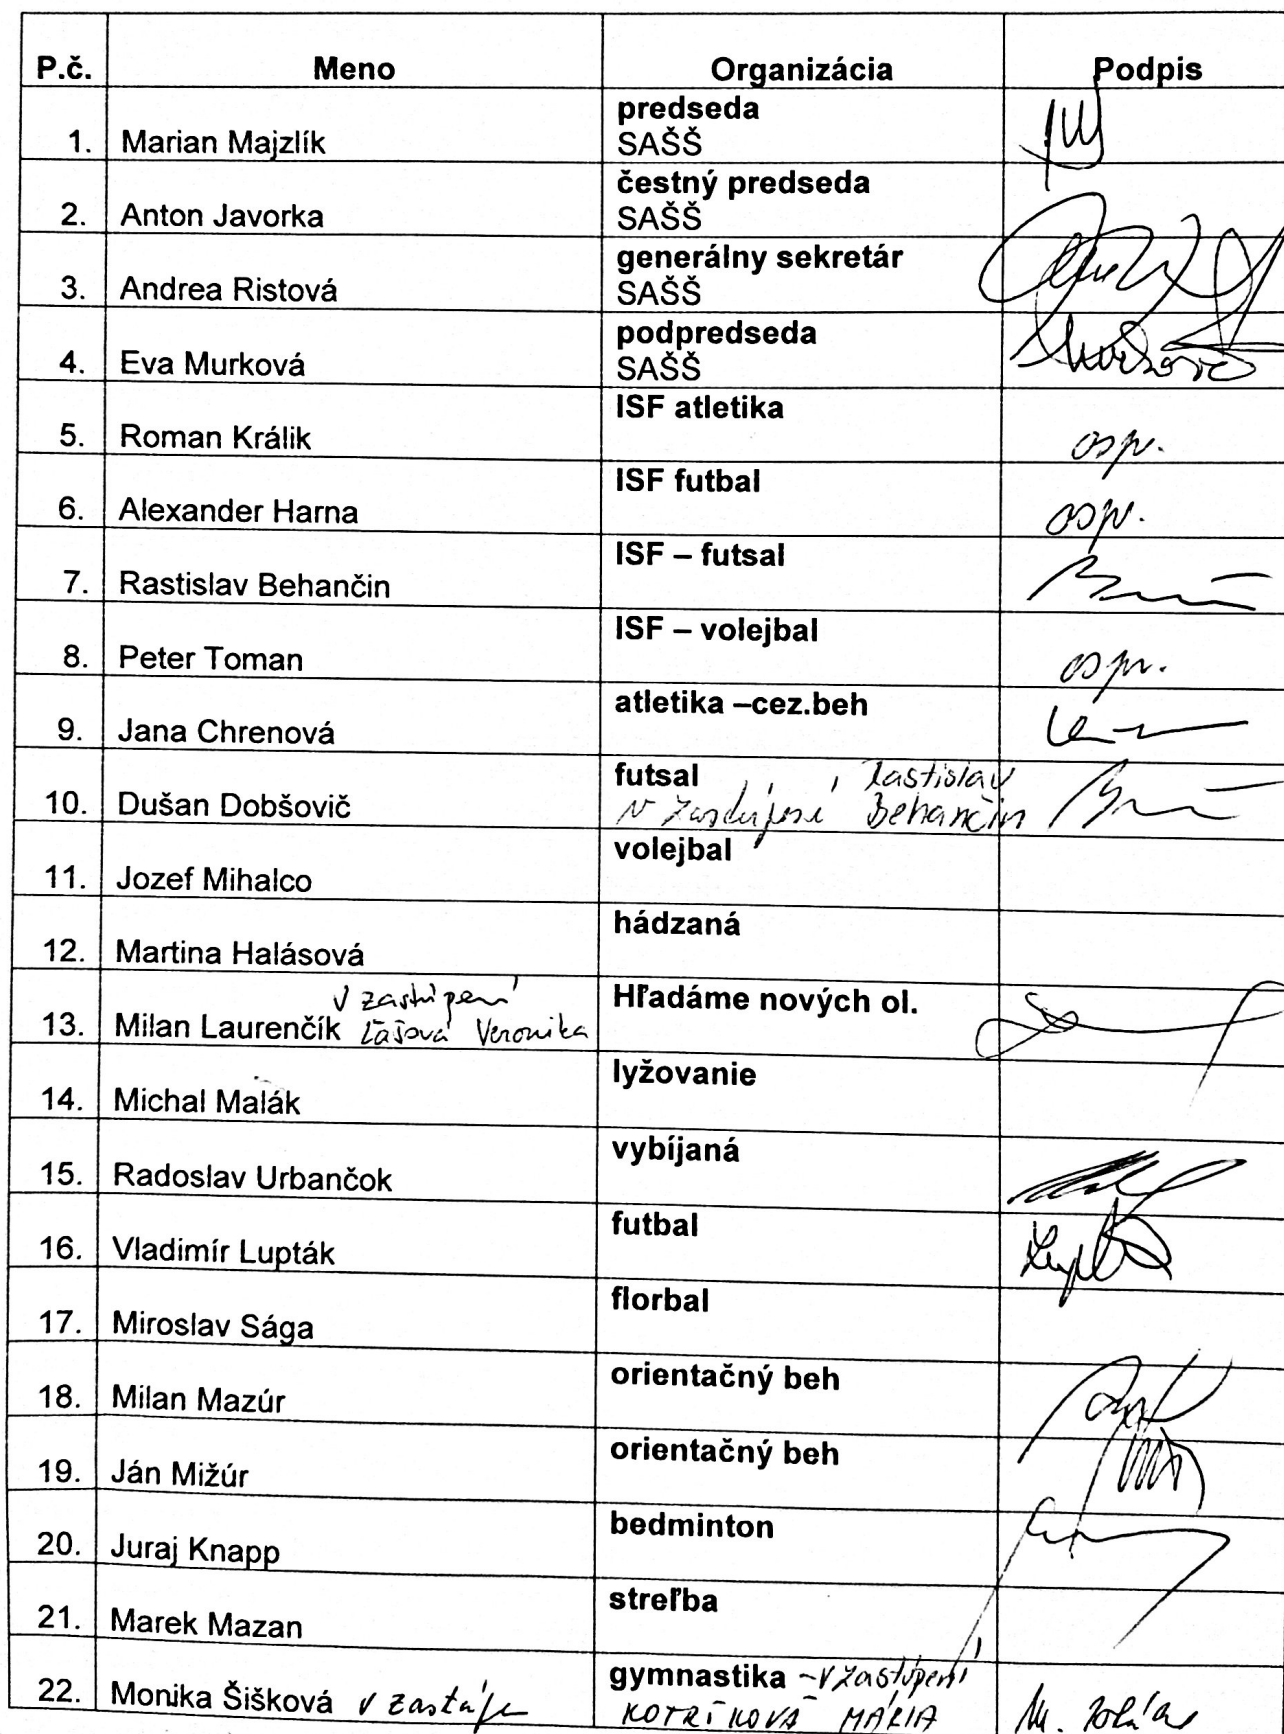 P.č. Meno Organizácia Podpis
1. Marian Majzlík predseda
SAŠŠ
2. Anton Javorka čestný predseda
SAŠŠ
3. Andrea Ristová generálny sekretár
SAŠŠ
4. Eva Murková podpredseda
SAŠŠ
5. Roman Králik ISF atletika ospr.
6. Alexander Harna ISF futbal ospr.
7. Rastislav Behančin ISF – futsal
8. Peter Toman ISF – volejbal ospr.
9. Jana Chrenová atletika –cez.beh
10. Dušan Dobšovič futsal Rastislav
v zastúpení Behančin
11. Jozef Mihalco volejbal
12. Martina Halásová hádzaná
v zastúpení
13. Milan Laurenčík Veronika Hľadáme nových ol.
14. Michal Malák lyžovanie
15. Radoslav Urbančok vybíjaná
16. Vladimír Lupták futbal
17. Miroslav Sága florbal
18. Milan Mazúr orientačný beh
19. Ján Mižúr orientačný beh
20. Juraj Knapp bedminton
21. Marek Mazan streľba
22. Monika Šišková v zastúpe gymnastika – v zastúpení
MÁRIA